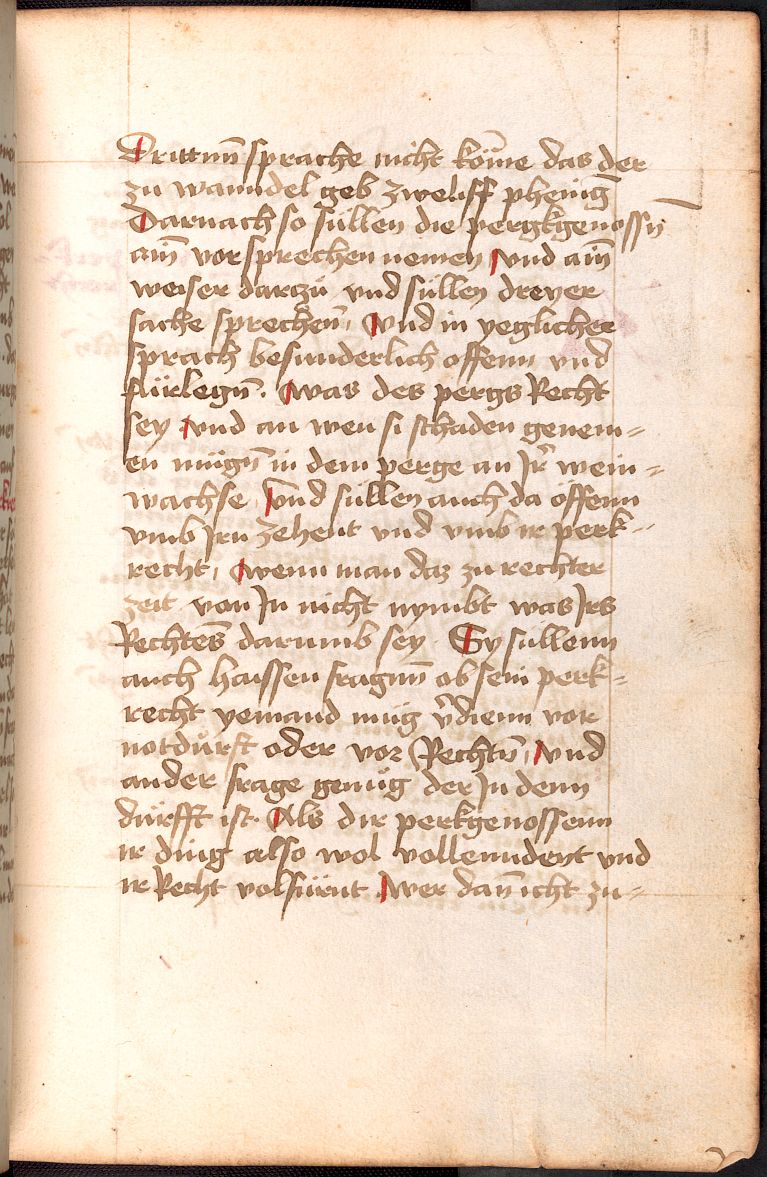 Drittnn̄ sprache nicht köm̄e das der
zu wanndel geb zweliff pheniḡ
Darnach so süllen die pergkgenossn̄
ain̄ vorsprechen nemen vnd ain̄
weiser darzü vnd süllen dreyer
sache sprechen̄, vnd in yeglicher
sprach besunderlich offenn vnd
fürlegn̄. was des pergs Recht
sey vnd an wen si schaden genem=
en mügn̄ in dem perge an Jr̄ wein=
wachse, vnd süllen auch da offenn
vmb Jrn zehent vnd vmb ir perk=
recht, wenn man daz zu rechter
zeit von Jn nicht nymbt was Jrs
Rechtes̄ darumb sey. Sy süllenn
auch haissen fragnn̄ ob sein perk=
recht yemand müg v̄dienn vor
notdürft oder vor Rechtn̄, vnd
ander frage genüg der Jn denn
dürfft ist. Als dir perkgenossenn
ir ding also wol vollenndent vnd
ir Recht volfürnt. wer dan̄ icht zu=